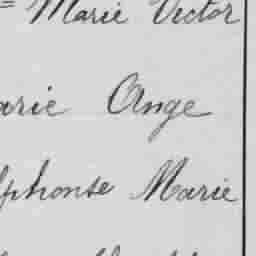 = Marie Victor
arie Ange
lphonse Marie